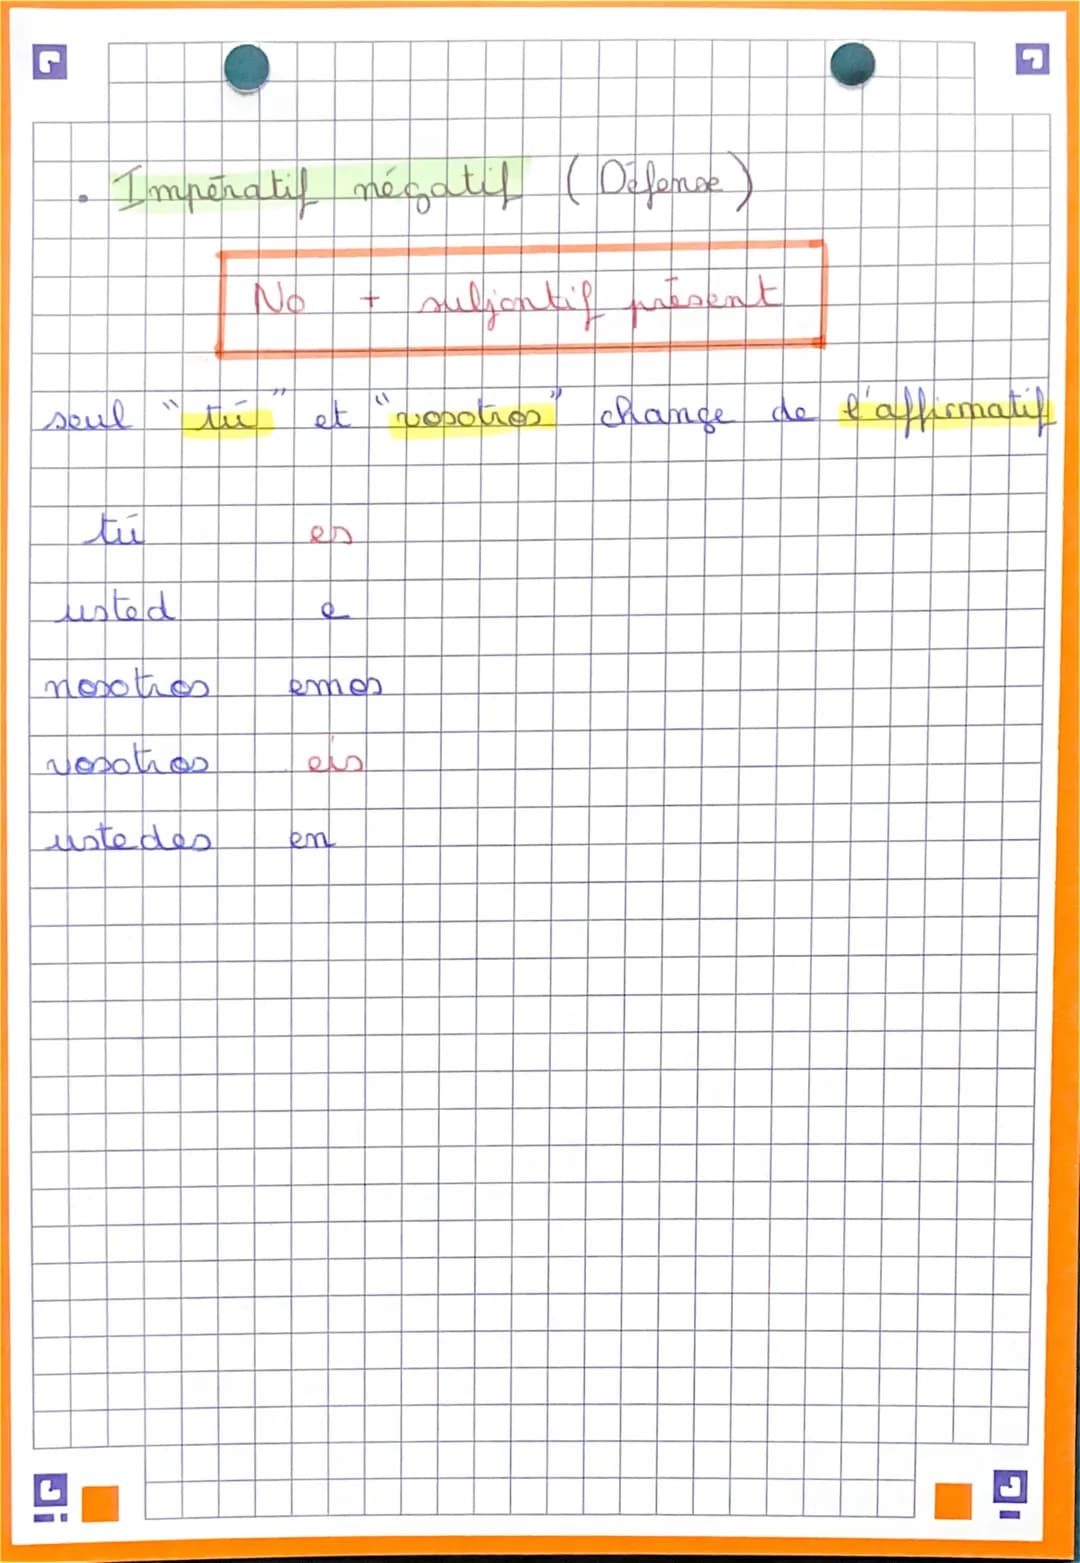 . Impératif négatif (Défense)
No + subjontif présent
seul "tú" et "vosotros" change de l'affirmatif
tú es
usted e
nosotros emos
vosotros eis
ustedes en